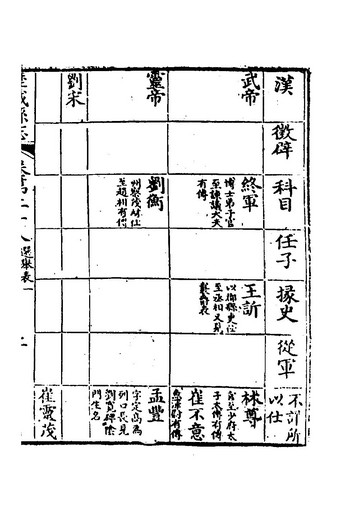 漢
徵辟
科目
任子
掾史
從軍
不詳所
以仕
武帝
終軍
博士弟子官
至諫議大夫
有傳
王訢
以郡縣史位
至丞相又見
林尊
官至少府太
子太傅有傳
崔不意
魚澤尉有傳
靈帝
劉衡
州舉茂材仕
至趙相有傳
孟豐
字定高為
列口長見
劉寬碑陰
門生名
劉宋
崔靈茂
歷城縣志
二十八
選舉表一